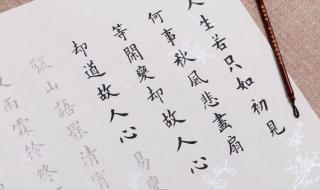 人生若只如初見
何事秋風悲畫扇
等閑變却故人心
却道故人心易變
驪山語罷清宵
雨霖鈴終